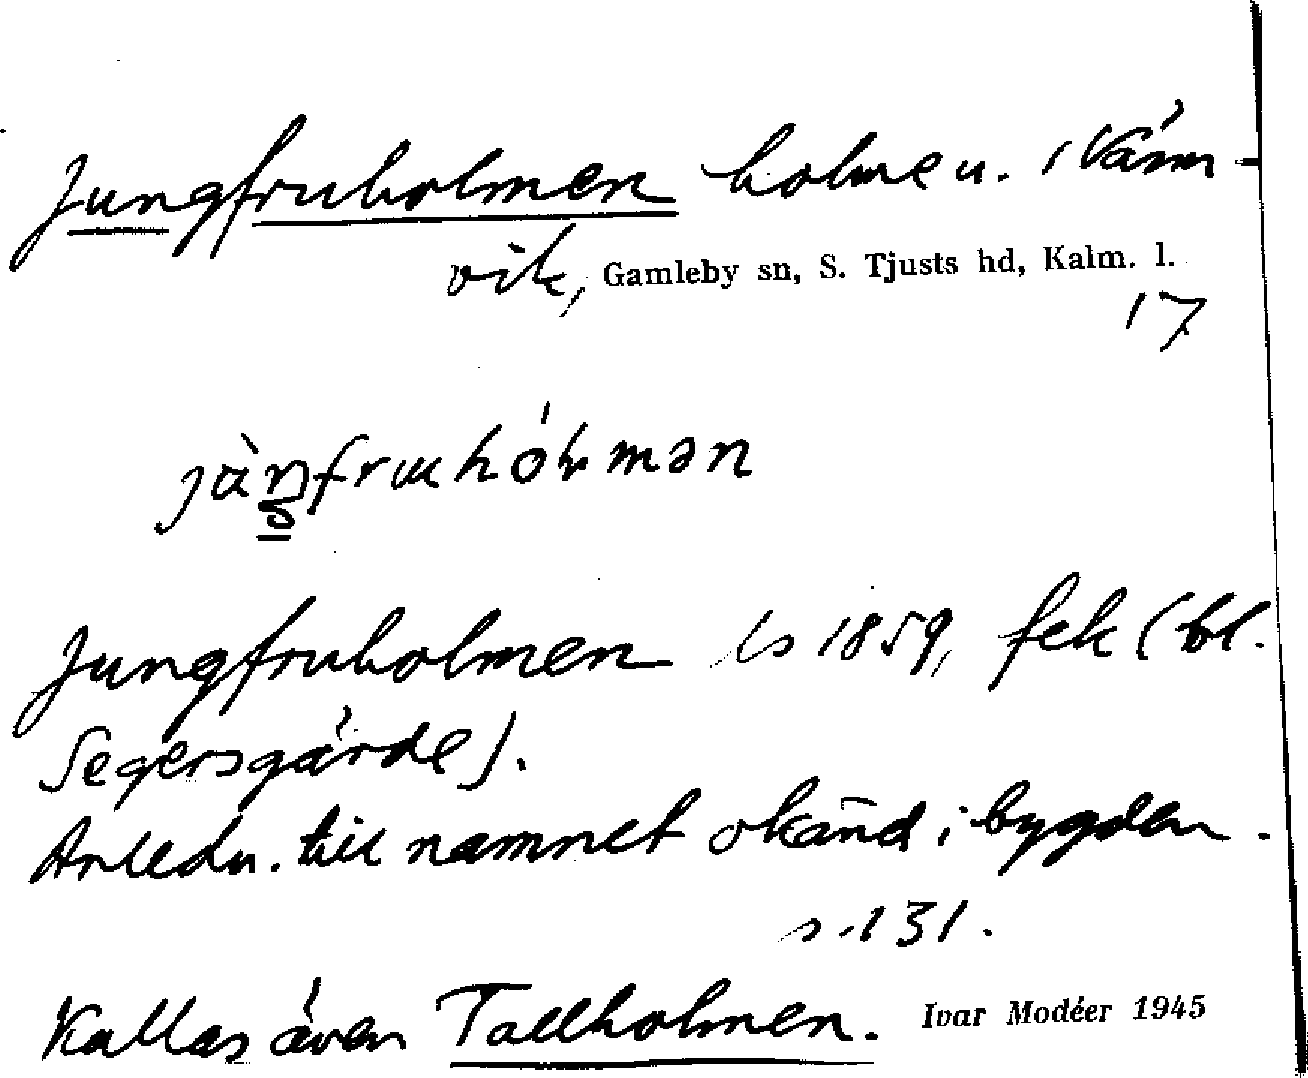 Jungfruholmen holme u. i Vänn-
vik, Gamleby sn, S. Tjusts hd, Kalm. l.
17
Jungfruholmen Ls 1859, fek (bl.
Segersgärde).
Anledn. till namnet okänd i bygden.
s. 131.
Kallas även Tallholmen. Ivar Modéer 1945